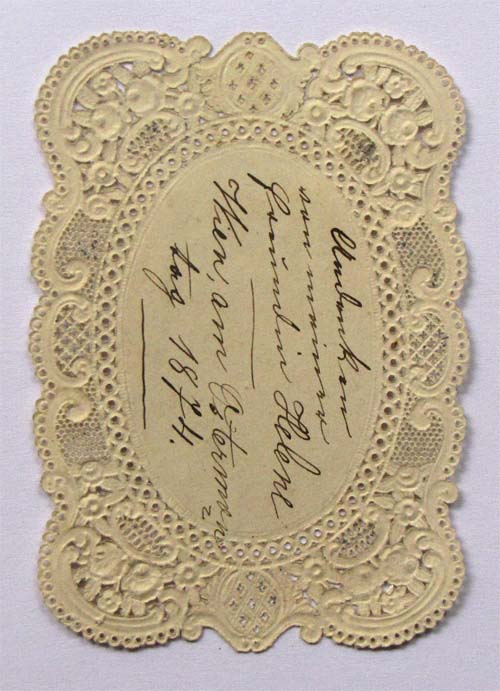 Andenken
von meiner
Freundin Helene
Wien, am Ostermon=
tag 1874.